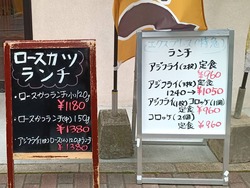 ロースカツ
ランチ
・ロースカツランチ(小)120g
¥1180
・ロースカツランチ(中)150g
¥1380
・アジフライ(1枚)ロース(小)120gランチ
¥1380
ランチ
アジフライ(2枚)定食
¥960
アジフライ(3枚)定食
1240→¥1050
アジフライ(1枚)コロッケ(1個)
定食 ¥960
コロッケ(2個)
定食 ¥960